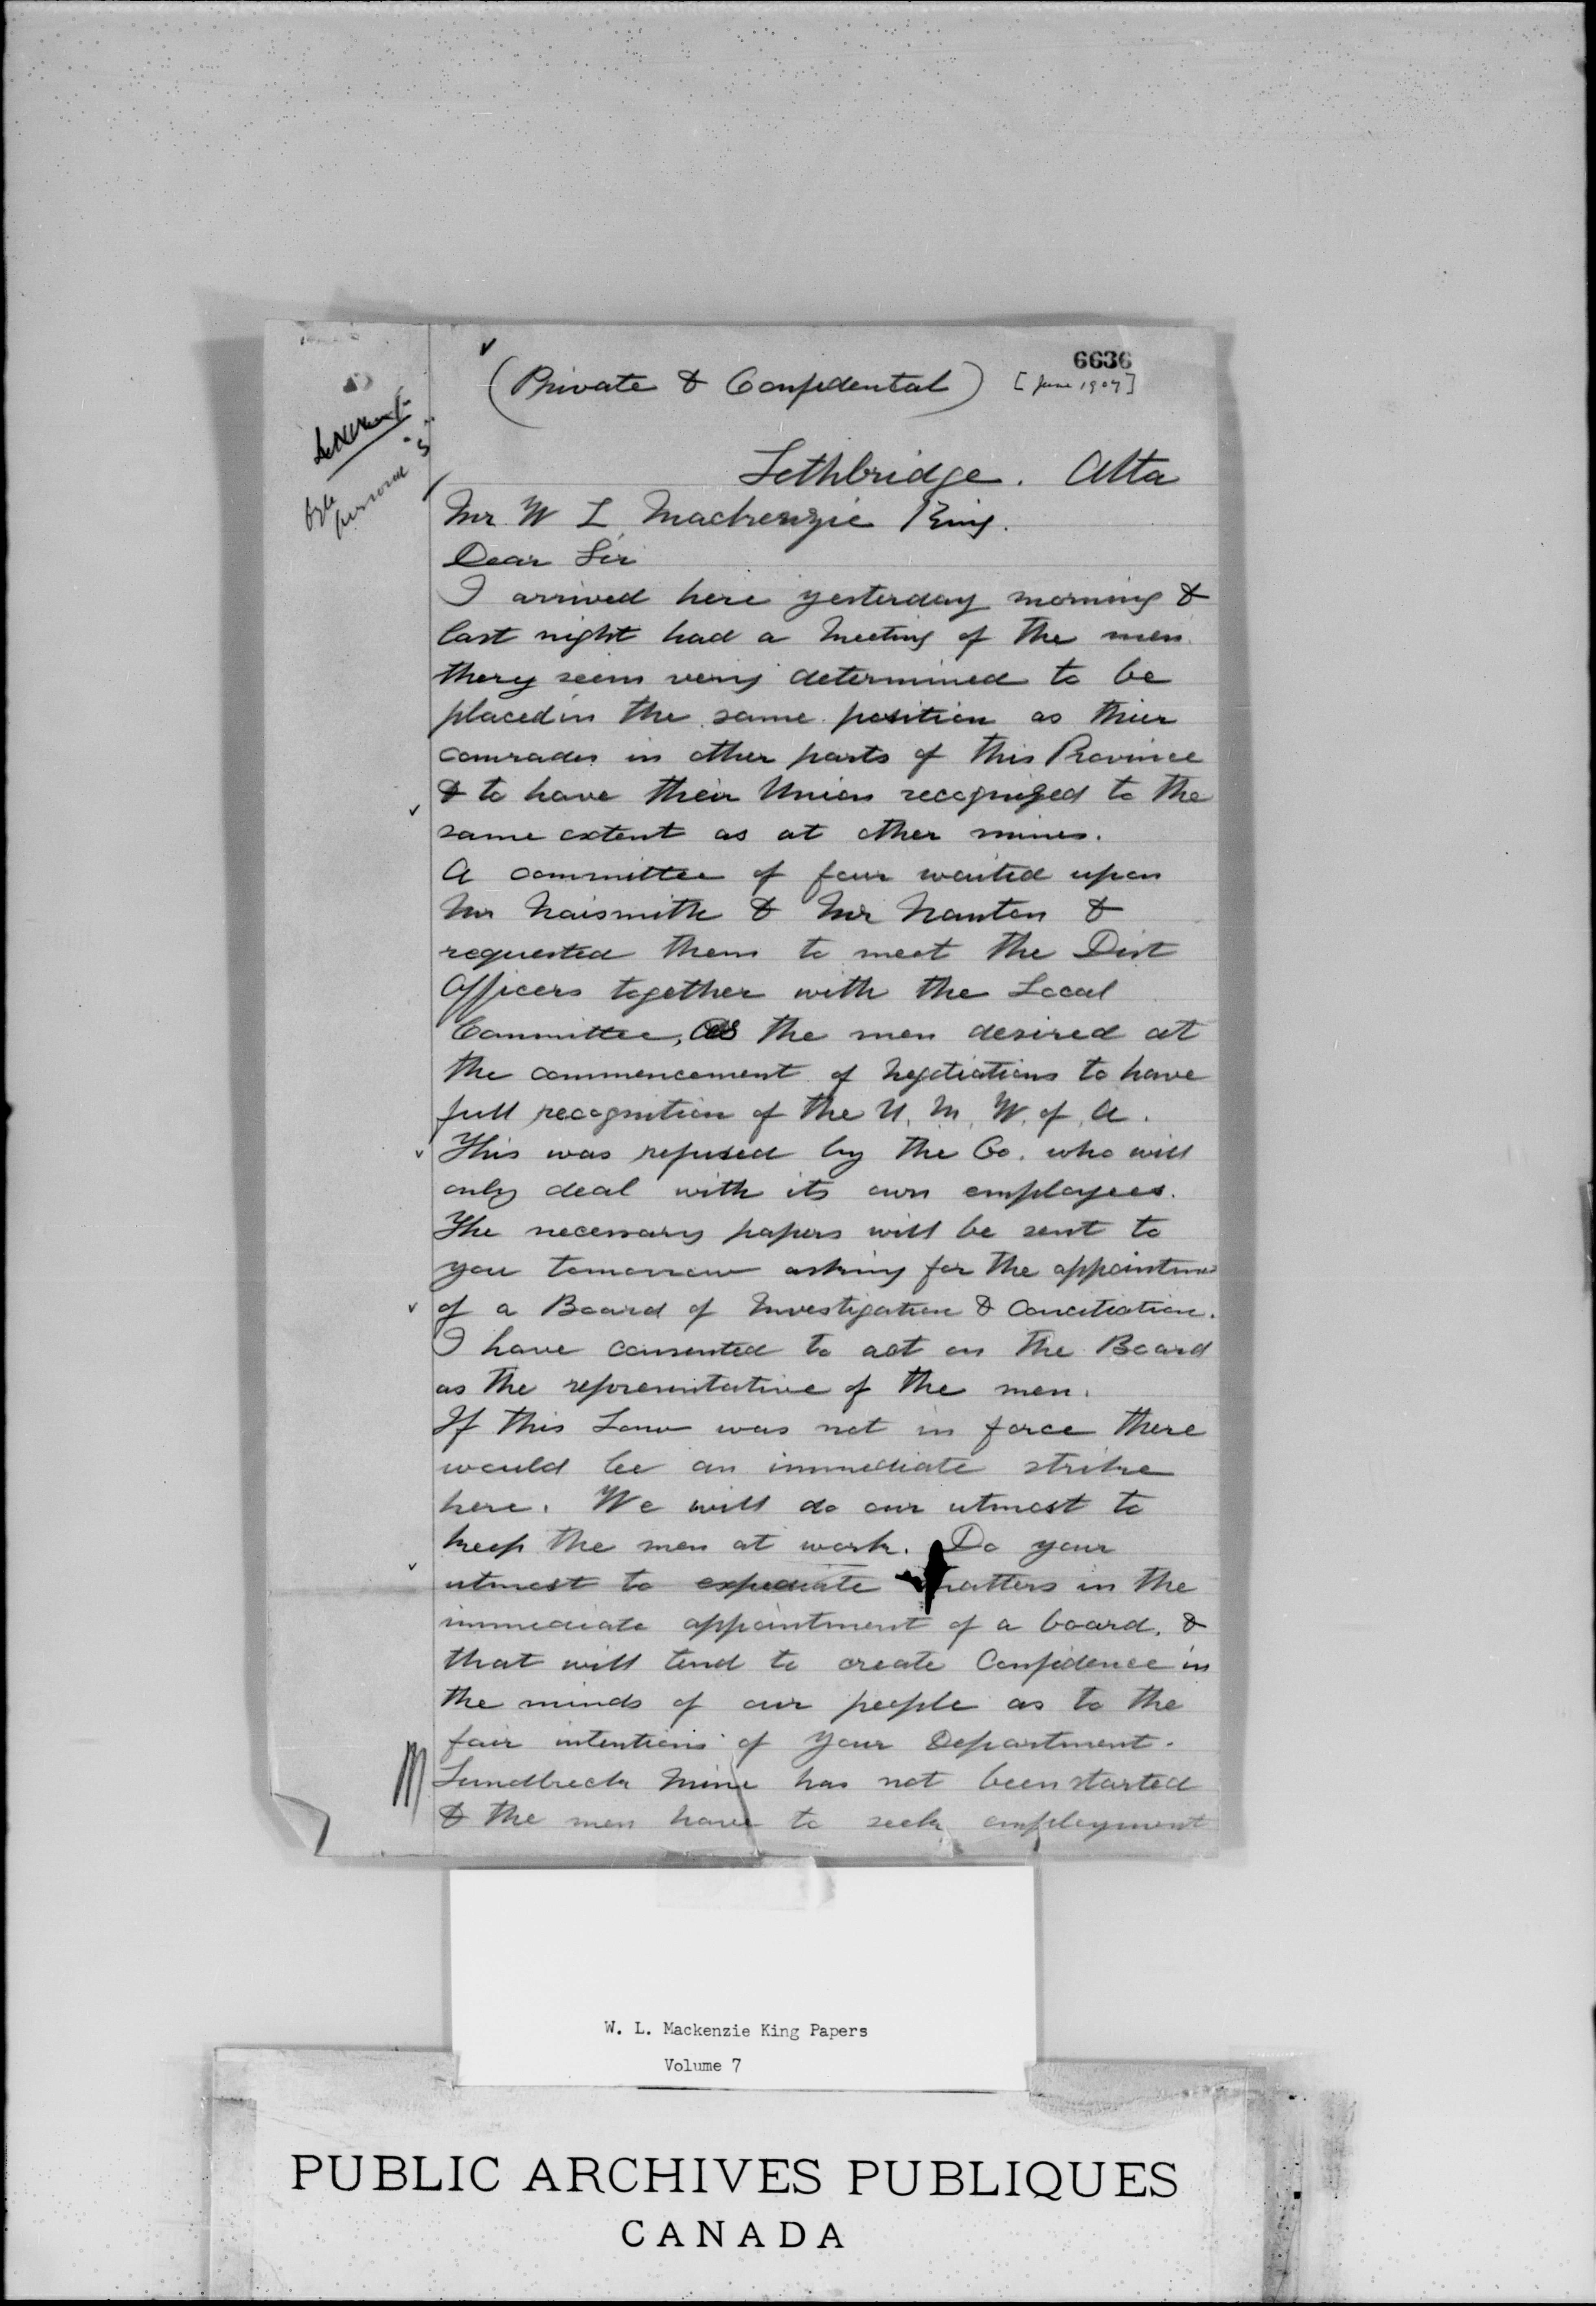 6636
(Private & Confidental) [June 1907]
file personal
Lethbridge. Alta
Mr W L Mackenzie King.
Dear Sir
I arrived here yesterday morning &
last night had a meeting of the men.
they seem very determined to be
placed in the same position as thier
comrades in other parts of this Province
& to have their Union recognized to the
same extent as at other mines.
A committee of four waited upon
Mr Naismith & Mr Nanton &
requested them to meet the Dist
Officers together with the Local
Committee, as the men desired at
the commencement of negotiations to have
full recognition of the U. M. W. of A.
This was refused by the Co. who will
only deal with its own employees.
The necessary papers will be sent to
you tomorrow asking for the appointme
of a Board of Investigation & Conciliation.
I have consented to act on the Board
as the representative of the men.
If this Law was not in force there
would be an immediate strike
here. We will do our utmost to
keep the men at work. Do your
utmost to expediate matters in the
immediate appointment of a board. &
that will tend to create Confidence in
the minds of our people as to the
fair intentions of your Department.
Lundbreck Mine has not been started
& the men have to seek employment
W. L. Mackenzie King Papers
Volume 7
PUBLIC ARCHIVES PUBLIQUES
CANADA